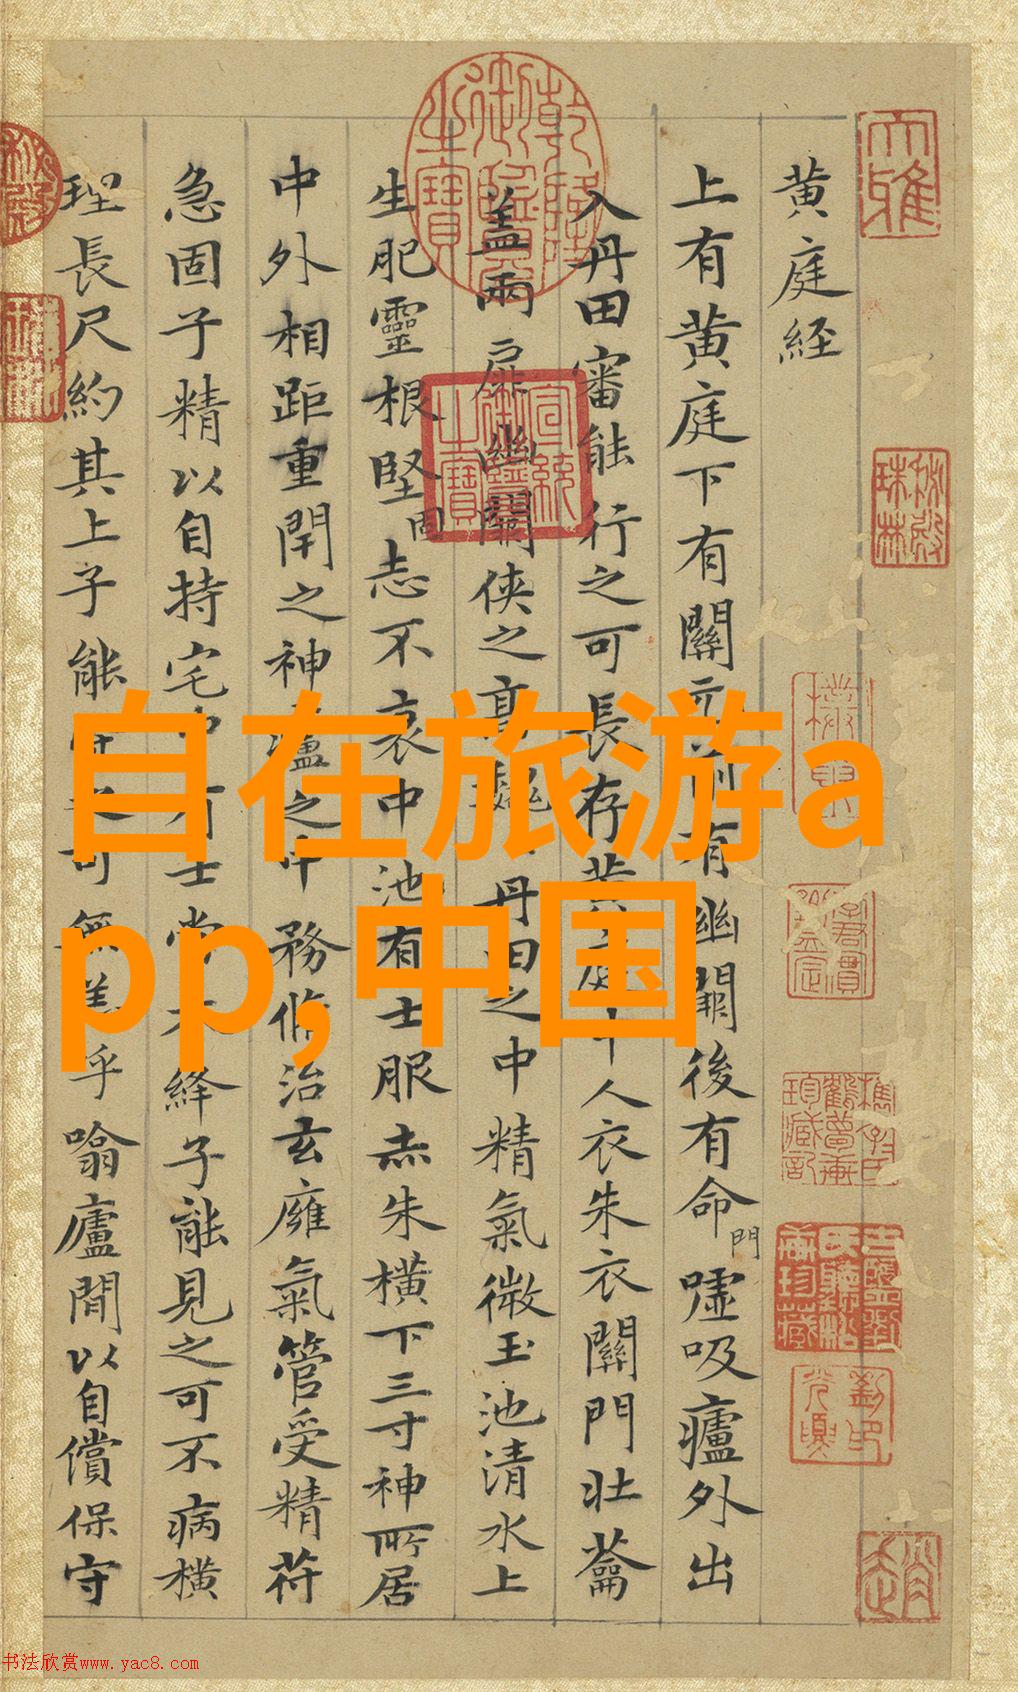 自在旅游a
pp,中国
黄庭経
上有黄庭下有關元前有幽闕後有命門嘘吸廬外出
入丹田審能行之可長存黄庭中人衣朱衣關門壮蘥
盖兩扉幽關侠之髙巍丹田之中精氣微玉池清水上
生肥靈根堅固志不衰中池有士服赤朱横下三寸神所居
中外相距重閇之神廬之中務脩治玄廱氣管受精苻
急固子精以自持宅中有士常衣絳子能見之可不病横
理長尺約其上子能守之可無恙乎噏廬間以自償保守
乾隆御覽之寶
宣統御覽之寶
大雅
书法欣赏www.yac8.com